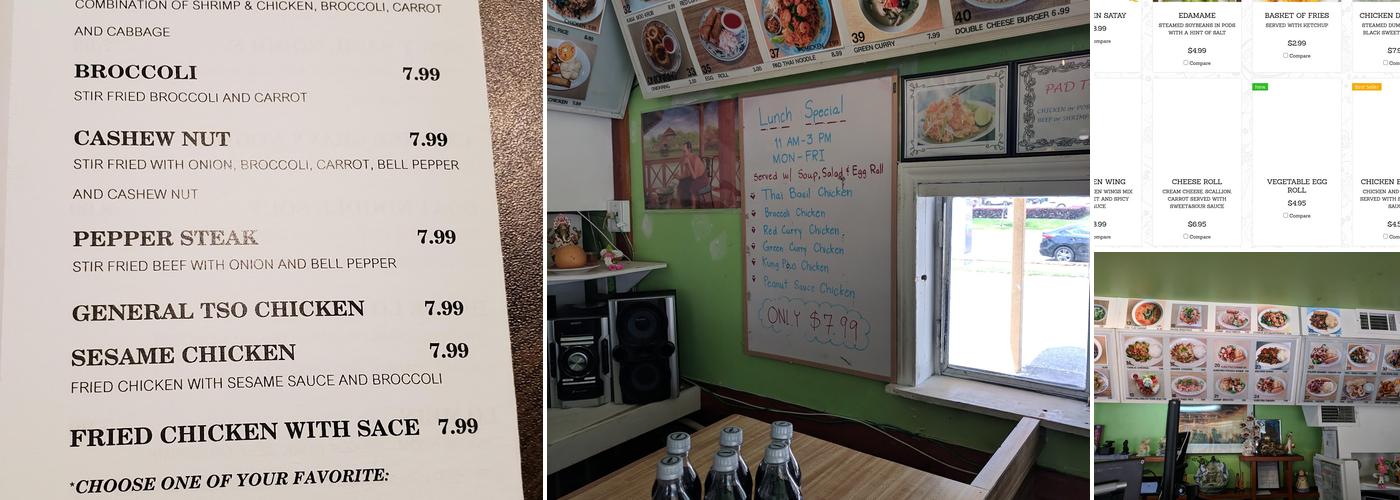 COMBINATION OF SHRIMP & CHICKEN, BROCCOLI, CARROT
AND CABBAGE
BROCCOLI 7.99
STIR FRIED BROCCOLI AND CARROT
CASHEW NUT 7.99
STIR FRIED WITH ONION, BROCCOLI, CARROT, BELL PEPPER
AND CASHEW NUT
PEPPER STEAK 7.99
STIR FRIED BEEF WITH ONION AND BELL PEPPER
GENERAL TSO CHICKEN 7.99
SESAME CHICKEN 7.99
FRIED CHICKEN WITH SESAME SAUCE AND BROCCOLI
FRIED CHICKEN WITH SACE 7.99
*CHOOSE ONE OF YOUR FAVORITE:
40
DOUBLE CHEESE BURGER 6.99
39
GREEN CURRY 7.99
37
PAD THAI NOODLE 8.99
33
35
EGG ROLL
PAD T
Lunch Special
11 AM-3 PM
MON-FRI
Served w/ Soup, Salad & Egg Roll
Thai Basil Chicken
Broccoli Chicken
Red Curry Chicken
Green Curry Chicken
Kung Pao Chicken
Peanut Sauce Chicken
ONLY $7.99
EN SATAY
8.99
ompare
EDAMAME
STEAMED SOYBEANS IN PODS
WITH A HINT OF SALT
$4.99
Compare
BASKET OF FRIES
SERVED WITH KETCHUP
$2.99
Compare
CHICKEN D
STEAMED DUM
BLACK SWEET
$7.5
Com
EN WING
EN WINGS MIX
T AND SPICY
UCE
8.99
ompare
CHEESE ROLL
CREAM CHEESE, SCALLION,
CARROT SERVED WITH
SWEET&SOUR SAUCE
$6.95
Compare
New
VEGETABLE EGG
ROLL
$4.95
Compare
Best Seller
CHICKEN E
CHICKEN AND
SERVED WITH S
SAU
$4.5
Com